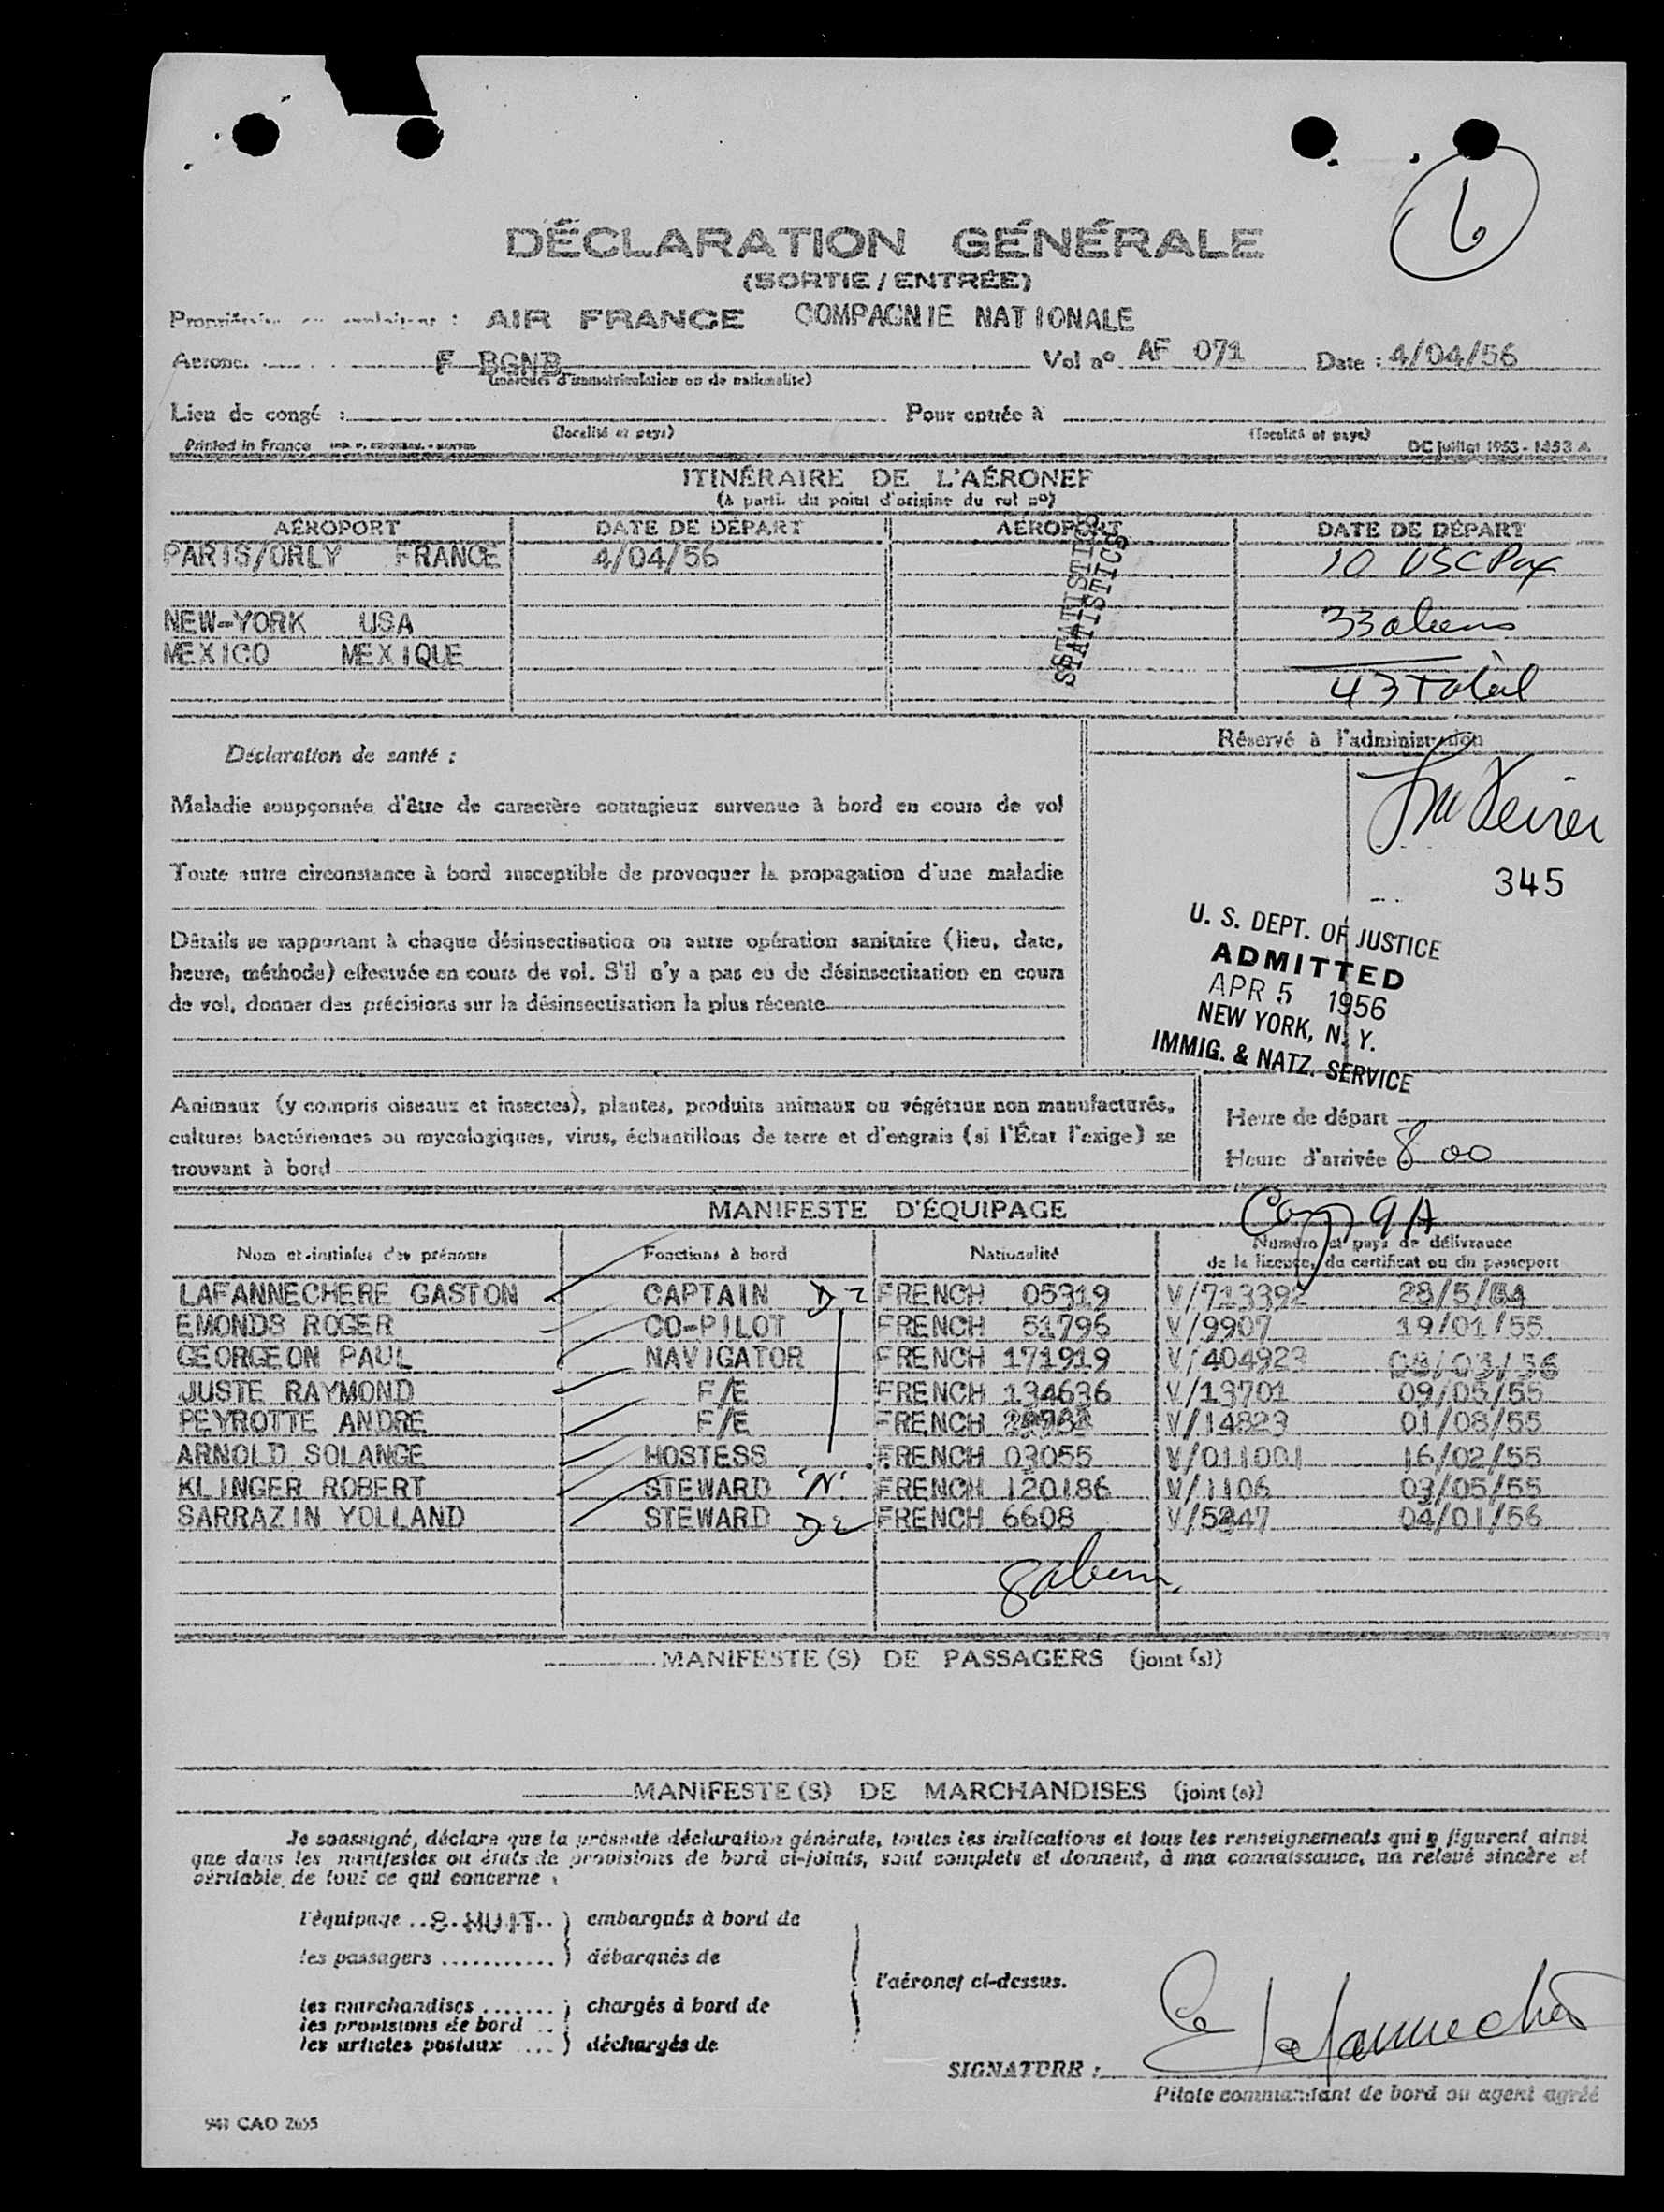 6
DÉCLARATION GÉNÉRALE
(SORTIE / ENTRÉE)
AIR FRANCE COMPAGNIE NATIONALE
F BGNB Vol nº AF 071 Date : 4/04/56
(marques d'immatriculation ou de nationalité)
Lieu de congé : Pour entrée à
(localité et pays) (localité et pays)
Printed in France DC juillet 1953 - 1453 A
ITINÉRAIRE DE L'AÉRONEF
(à partir du point d'origine du vol nº)
AÉROPORT DATE DE DÉPART AÉROPORT DATE DE DÉPART
PARIS/ORLY FRANCE 4/04/56 10 USC Pax
STATISTICS
STATISTICS
NEW-YORK USA 33 aliens
MEXICO MEXIQUE
43 Total
Réservé à l'administration
Déclaration de santé :
Maladie soupçonnée d'être de caractère contagieux survenue à bord en cours de vol
Toute autre circonstance à bord susceptible de provoquer la propagation d'une maladie
345
Détails se rapportant à chaque désinsectisation ou autre opération sanitaire (lieu, date,
heure, méthode) effectuée en cours de vol. S'il n'y a pas eu de désinsectisation en cours
de vol, donner des précisions sur la désinsectisation la plus récente
U. S. DEPT. OF JUSTICE
ADMITTED
APR 5 1956
NEW YORK, N. Y.
IMMIG. & NATZ. SERVICE
Animaux (y compris oiseaux et insectes), plantes, produits animaux ou végétaux non manufacturés,
cultures bactériennes ou mycologiques, virus, échantillons de terre et d'engrais (si l'État l'exige) se
trouvant à bord
Heure de départ
Heure d'arrivée 8 00
MANIFESTE D'ÉQUIPAGE
9A
Nom et initiales des prénoms Fonctions à bord Nationalité Numéro et pays de délivrance
de la licence, du certificat ou du passeport
LAFANNECHERE GASTON CAPTAIN D2 FRENCH 05319 V/713392 28/5/54
EMONDS ROGER CO-PILOT FRENCH 51796 V/9907 19/01/55
GEORGEON PAUL NAVIGATOR FRENCH 171919 V/404923 08/03/56
JUSTE RAYMOND F/E FRENCH 134636 V/13701 09/05/55
PEYROTTE ANDRE F/E FRENCH V/14823 01/08/55
ARNOLD SOLANGE HOSTESS FRENCH 03055 V/011001 16/02/55
KLINGER ROBERT STEWARD "N" FRENCH 120186 V/1106 03/05/55
SARRAZIN YOLLAND STEWARD D2 FRENCH 6608 V/5247 04/01/56
8 aliens
MANIFESTE (S) DE PASSAGERS (joint (s))
MANIFESTE (S) DE MARCHANDISES (joint (s))
Je soussigné, déclare que la présente déclaration générale, toutes les indications et tous les renseignements qui y figurent ainsi
que dans les manifestes ou états de provisions de bord ci-joints, sont complets et donnent, à ma connaissance, un relevé sincère et
véritable de tout ce qui concerne :
l'équipage .. 8. HUIT .. ) embarqués à bord de
les passagers ............ ) débarqués de
l'aéronef ci-dessus.
les marchandises ....... ) chargés à bord de
les provisions de bord ..
les articles postaux .... ) déchargés de
SIGNATURE : Lafannechere
Pilote commandant de bord ou agent agréé
941 CAO 2655